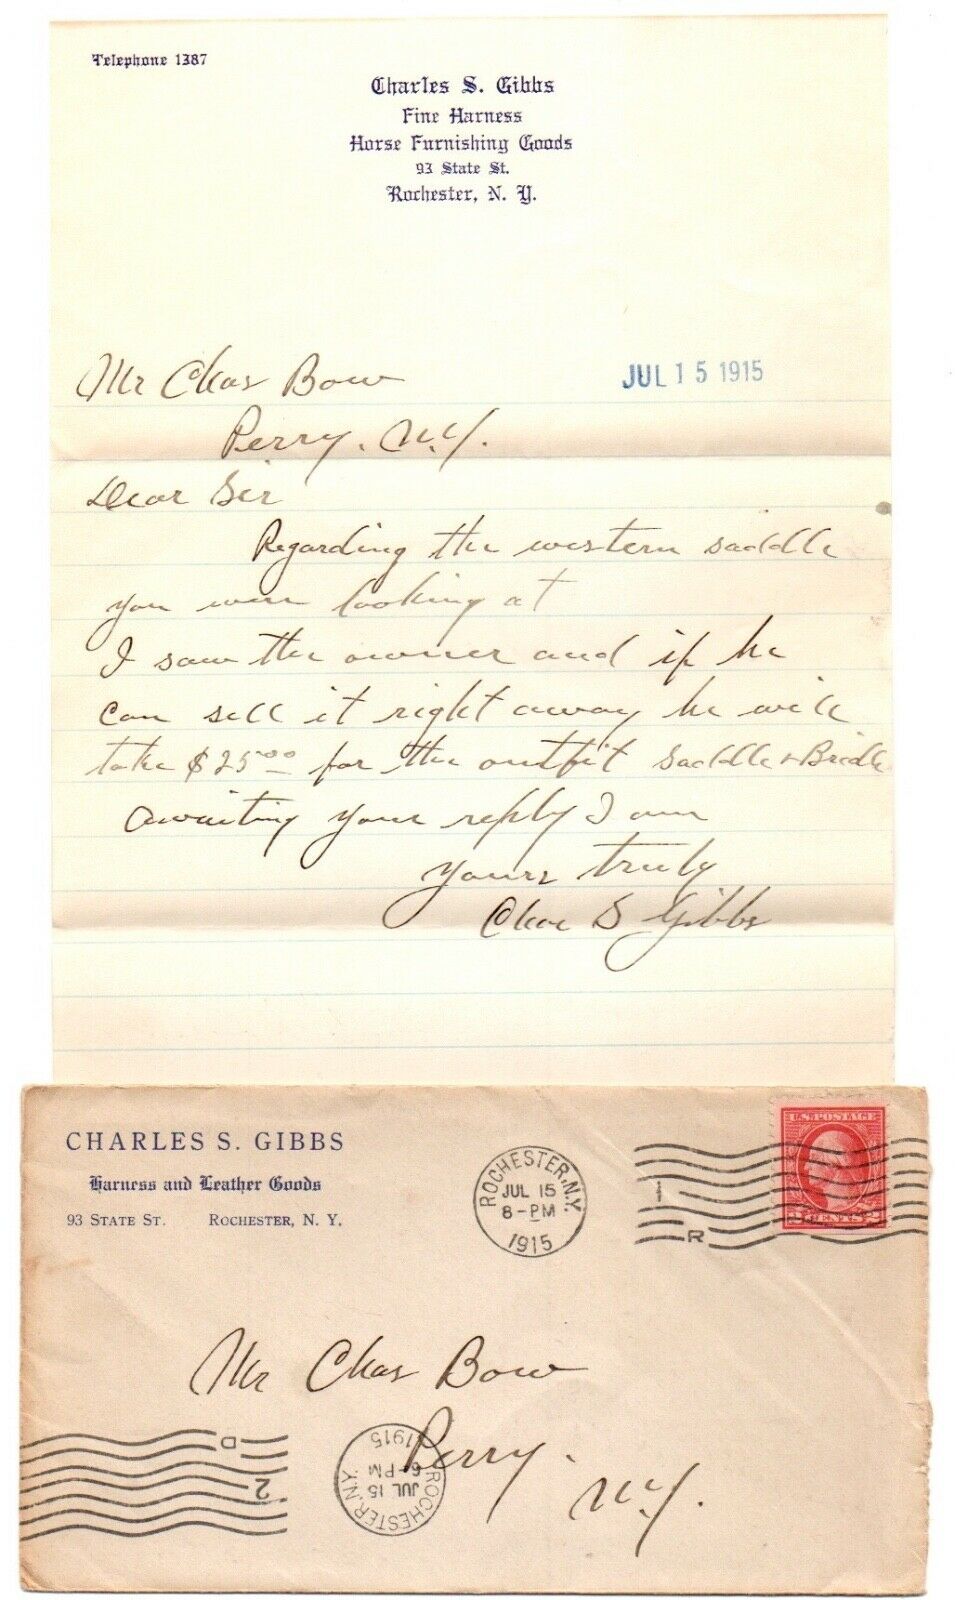 Telephone 1387
Charles S. Gibbs
Fine Harness
Horse Furnishing Goods
93 State St.
Rochester, N. Y.
JUL 15 1915
Mr Chas Bow
Perry. N.Y.
Dear Sir
Regarding the western saddle
you were looking at
I saw the owner and if he
can sell it right away he will
take $25.00 for the outfit Saddle & Bridle
awaiting your reply I am
Yours truly
Chas S Gibbs
CHARLES S. GIBBS
Harness and Leather Goods
93 STATE ST. ROCHESTER, N. Y.
ROCHESTER, N.Y.
JUL 15
8-PM
1915
1
R
U.S. POSTAGE
2 CENTS 2
Mr Chas Bow
Perry.
N.Y.
D
2
ROCHESTER, N.Y.
JUL 15
6-PM
1915